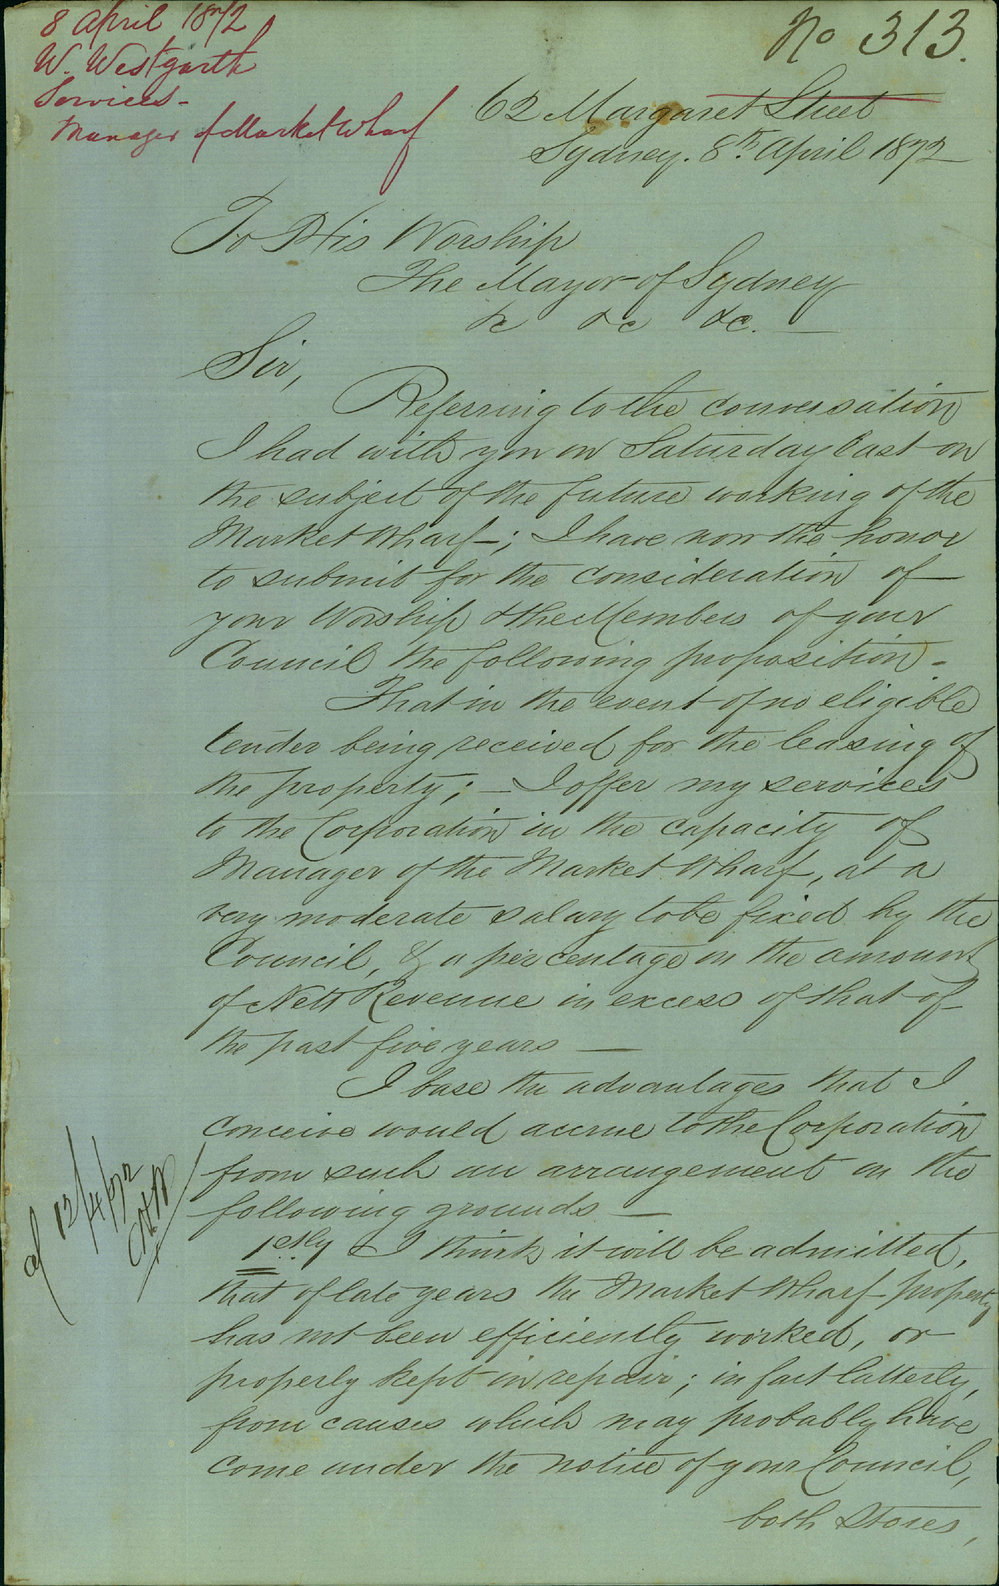 8 April 1872
W. Westgarth
Services -
Manager of Market Wharf
No 313.
62 Margaret Street
Sydney. 8th April 1872
To His Worship
The Mayor of Sydney
&c &c &c. —
Sir,
Referring to the conversation
I had with you on Saturday last on
the subject of the future working of the
Market Wharf -; I have now the honor
to submit for the consideration of
your Worship & the Members of your
Council the following proposition -
That in the event of no eligible
tender being received for the leasing of
the property; - I offer my services
to the Corporation in the capacity of
Manager of the Market Wharf, at a
very moderate salary to be fixed by the
Council, & a per centage on the amount
of Nett Revenue in excess of that of
the past five years —
I base the advantages that I
conceive would accrue to the Corporation
from such an arrangement on the
following grounds —
1stly I think it will be admitted,
that of late years the Market Wharf property
has not been efficiently worked, or
properly kept in repair; in fact latterly,
from causes which may probably have
come under the notice of your Council,
both Stores,
12/4/72